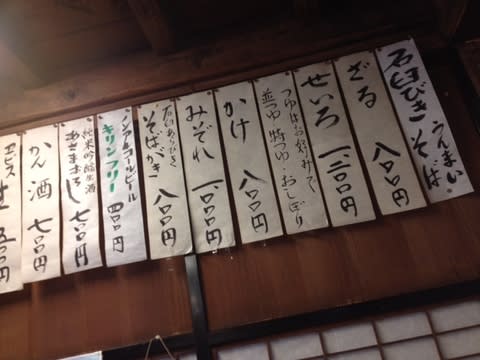 石臼びき
うんまい
そば
ざる 八〇〇円
せいろ 一、二〇〇円
つゆはお好みで
並つゆ・特つゆ・おしぼり
かけ 八〇〇円
みぞれ 一、〇〇〇円
石臼あらびき
そばがき 八〇〇円
ノンアルコールビール
キリンフリー 四〇〇円
純米吟醸生酒
あさまおろし 七〇〇円
かん酒 七〇〇円
ヱビス 生 五〇〇円